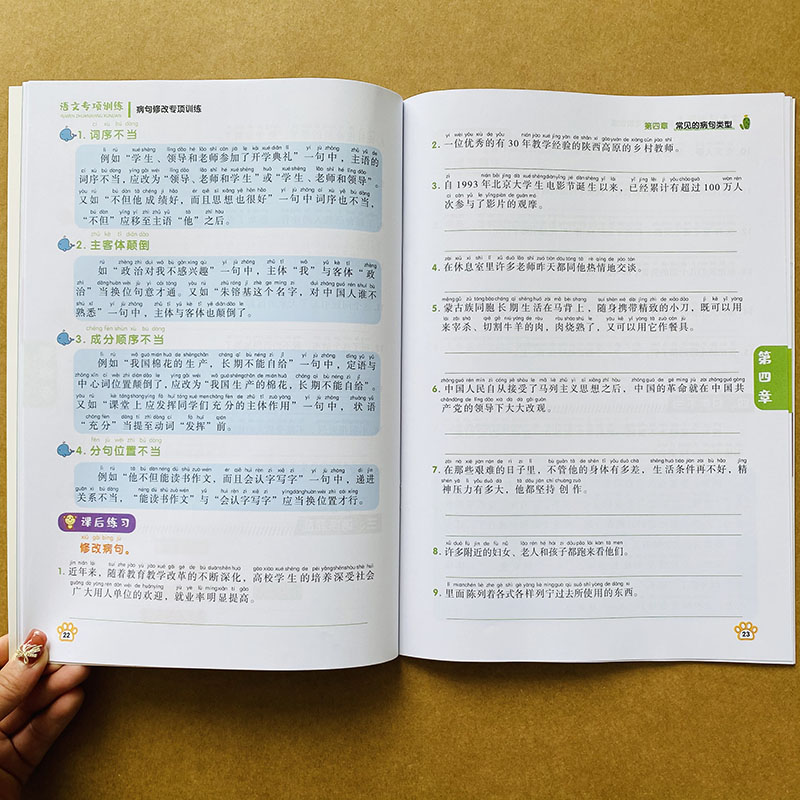 语文专项训练
病句修改专项训练
1. 词序不当
例如“学生、领导和老师参加了开学典礼”一句中，主语的
词序不当，应改为“领导、老师和学生”或“学生、老师和领导”。
又如“不但他成绩好，而且思想也很好”一句中词序也不当，
“不但”应移至主语“他”之后。
2. 主客体颠倒
如“政治对我不感兴趣”一句中，主体“我”与客体“政
治”当换位句意才通。又如“朱镕基这个名字，对中国人谁不
熟悉”一句中，主体与客体也颠倒了。
3. 成分顺序不当
例如“我国棉花的生产，长期不能自给”一句中，定语与
中心词位置颠倒了，应改为“我国生产的棉花，长期不能自给”。
又如“课堂上应发挥同学们充分的主体作用”一句中，状语
“充分”当提至动词“发挥”前。
4. 分句位置不当
例如“他不但能读书作文，而且会认字写字”一句中，递进
关系不当，“能读书作文”与“会认字写字”应当换位置才行。
课后练习
修改病句。
1. 近年来，随着教育教学改革的不断深化，高校学生的培养深受社会
广大用人单位的欢迎，就业率明显提高。
22
第四章 常见的病句类型
2. 一位优秀的有 30 年教学经验的陕西高原的乡村教师。
3. 自 1993 年北京大学生电影节诞生以来，已经累计有超过 100 万人
次参与了影片的观摩。
4. 在休息室里许多老师昨天都同他热情地交谈。
5. 蒙古族同胞长期生活在马背上，随身携带精致的小刀，既可以用
来宰杀、切割牛羊的肉，肉烧熟了，又可以用它作餐具。
6. 中国人民自从接受了马列主义思想之后，中国的革命就在中国共
产党的领导下大大改观。
7. 在那些艰难的日子里，不管他的身体有多差，生活条件再不好，精
神压力有多大，他都坚持创作。
8. 许多附近的妇女、老人和孩子都跑来看他们。
9. 里面陈列着各式各样列宁过去所使用的东西。
第四章
23